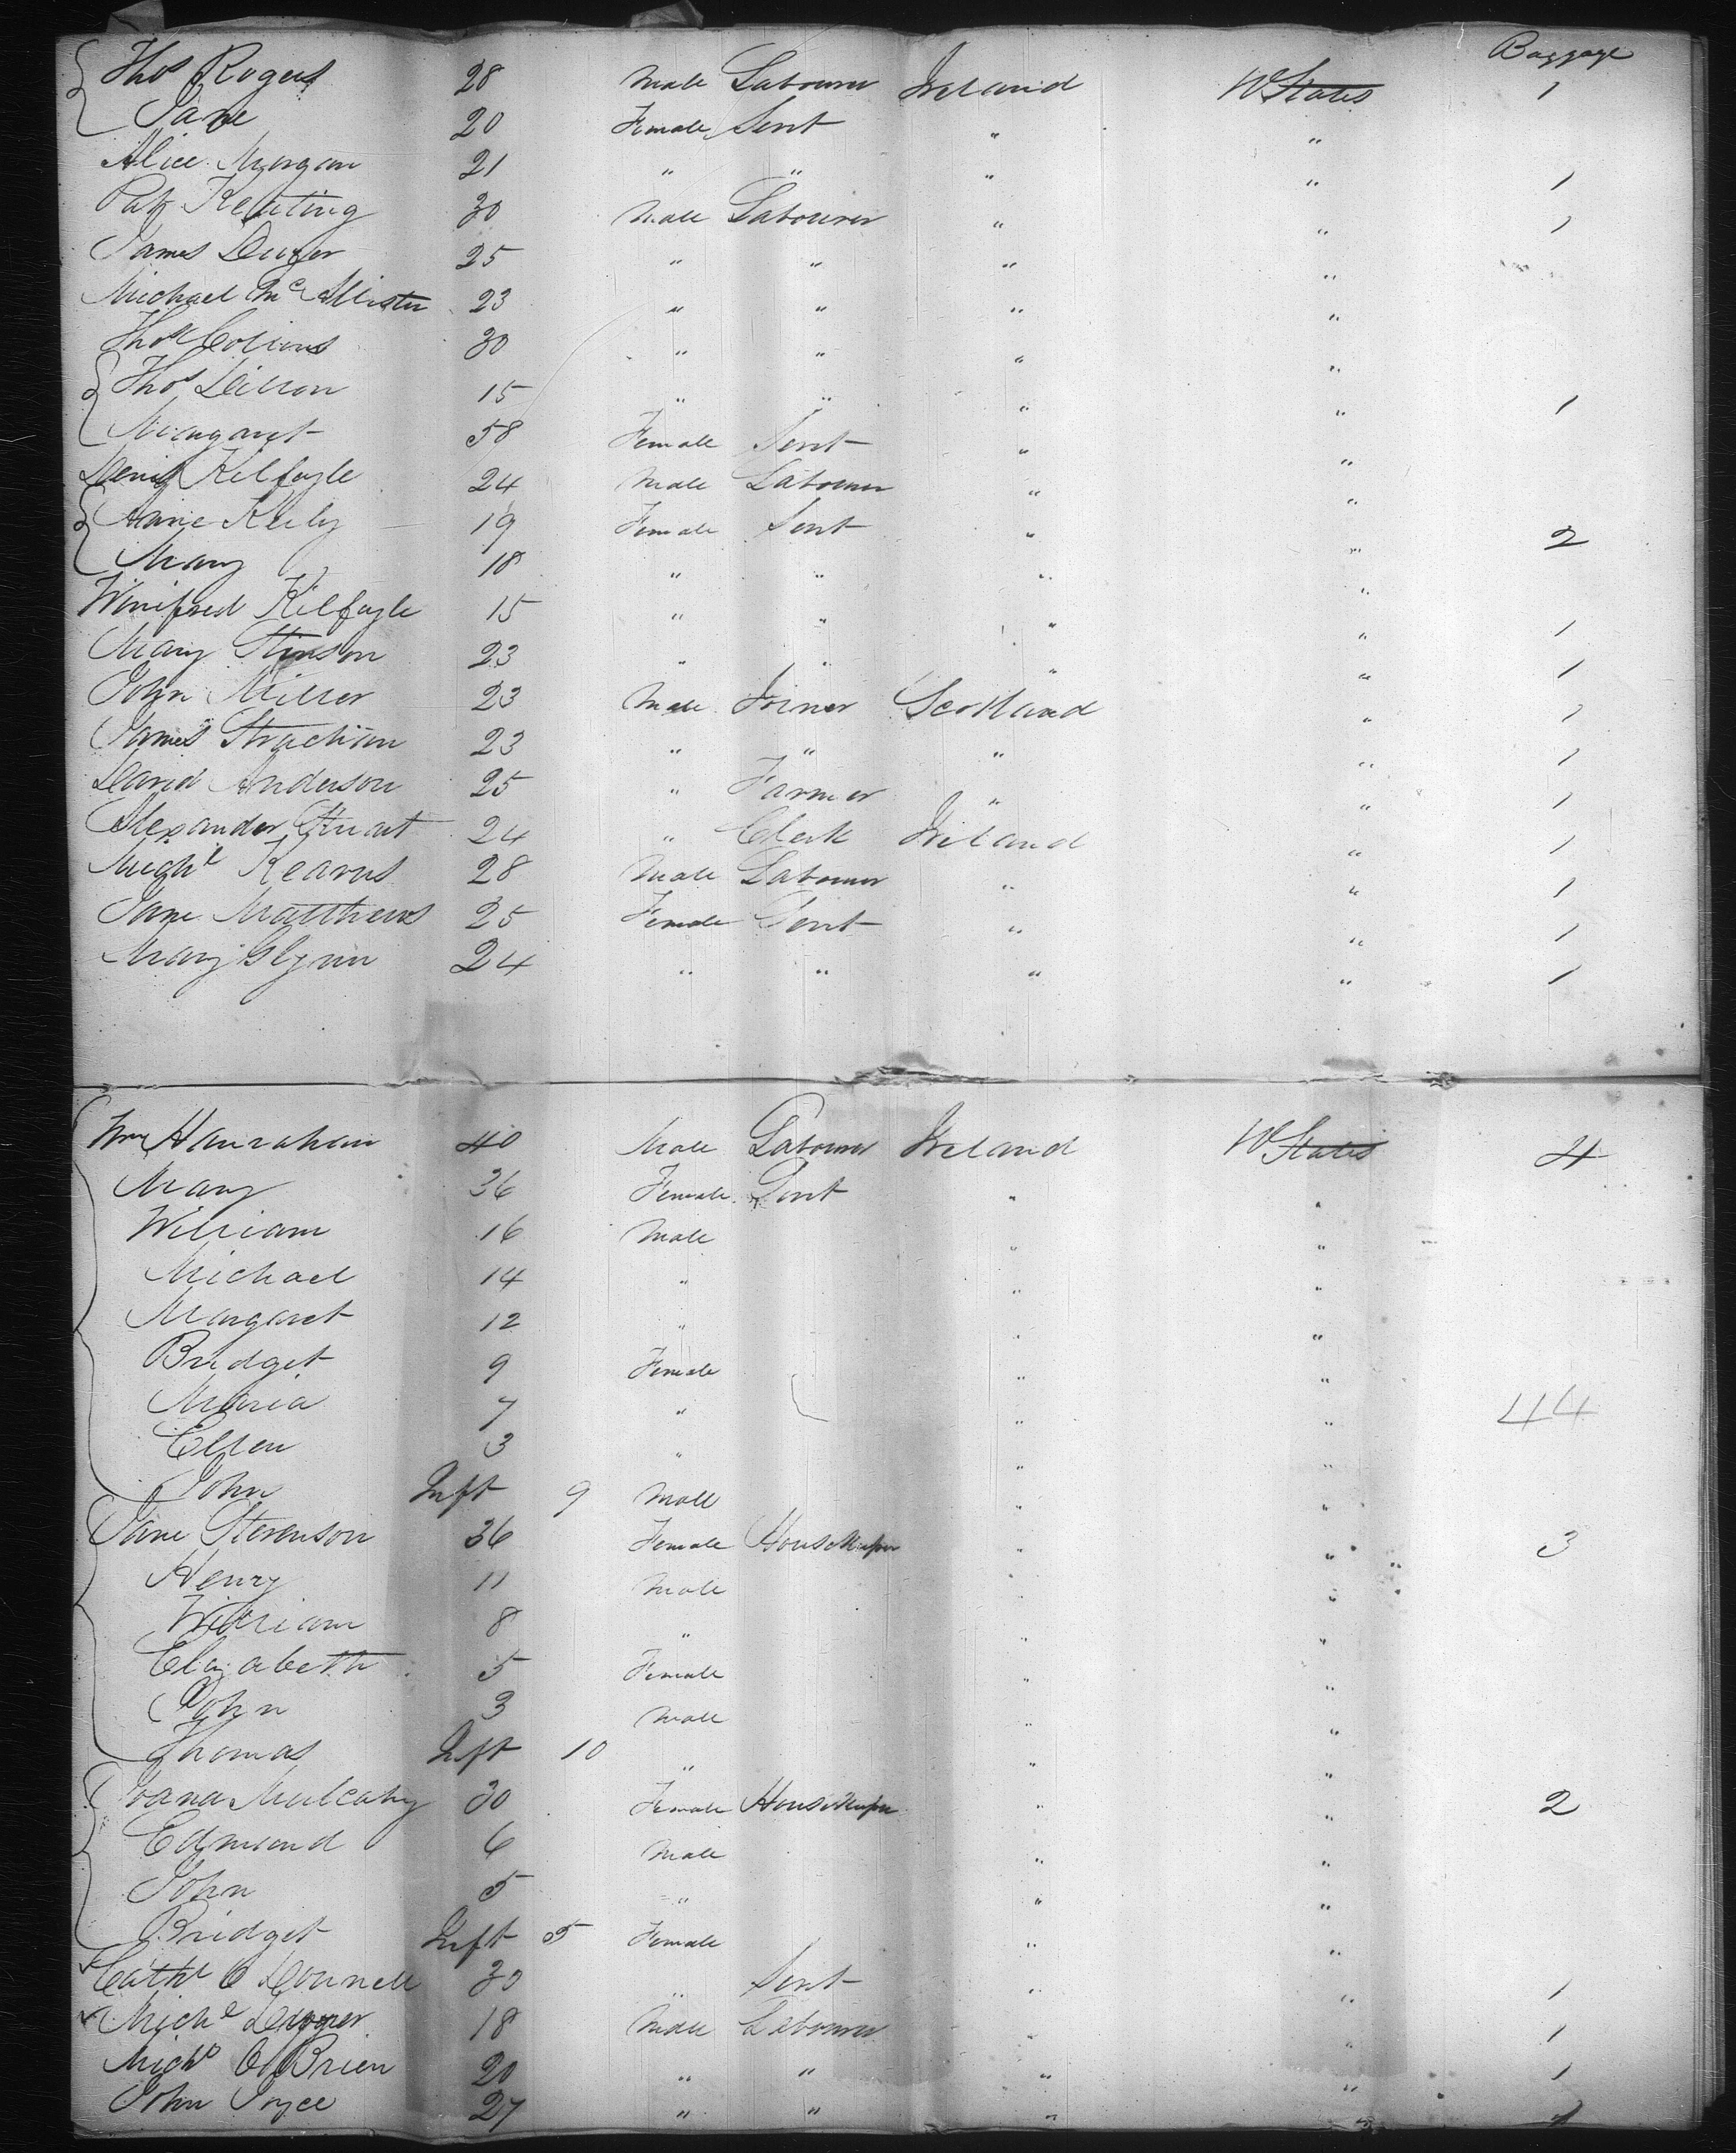 Baggage
Thos Rogers 28 Male Labourer Ireland UStates 1
Jane 20 Female Servt " "
Alice Morgan 21 " " " " 1
Patk Keating 30 Male Labourer " " 1
James Dwyer 25 " " " "
Michael McAllister 23 " " " "
Thos Collins 30 " " " "
Thos Dillon 15 " " " " 1
Margaret 58 Female Servt " "
Denis Kilfoyle 24 Male Labourer " "
Anne Kiely 19 Female Servt " " 2
Mary 18 " " " "
Winifred Kilfoyle 15 " " " " 1
Mary Stinson 23 " " " " 1
John Miller 23 Male Joiner Scotland " 1
James Strachan 23 " " " " 1
David Anderson 25 " Farmer " " 1
Alexander Stuart 24 " Clerk Ireland " 1
Michl Kearns 28 Male Labourer " " 1
Jane Matthews 25 Female Servt " " 1
Mary Glynn 24 " " " " 1
Wm Hanrahan 40 Male Labourer Ireland UStates 4
Mary 36 Female Servt " "
William 16 Male " "
Michael 14 " " "
Margaret 12 " " "
Bridget 9 Female " "
Maria 7 " " " 44
Ellen 3 " " "
John Inft 9 Male " "
Jane Stevenson 36 Female Housekeeper " " 3
Henry 11 Male "
William 8 " " "
Elizabeth 5 Female " "
John 3 Male " "
Thomas Inft 10 " " "
Joana Mulcahy 30 Female Housekeeper " " 2
Edmund 6 Male " "
John 5 " " "
Bridget Inft 5 Female " "
Cathe O Donnell 30 " Servt " " 1
Michl Dwyer 18 Male Labourer " " 1
Michl O'Brien 20 " " " " 1
John Joyce 27 " " " " 1